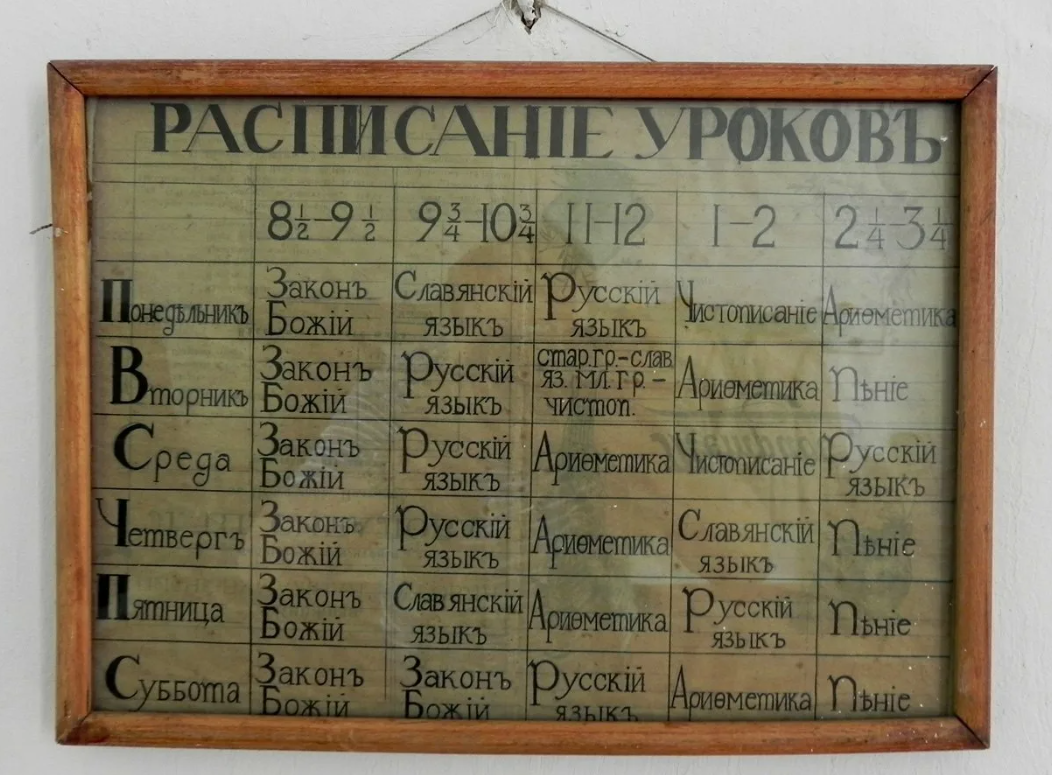 РАСПИСАНІЕ УРОКОВЪ
8 1/2-9 1/2 9 3/4-10 3/4 11-12 1-2 2 1/4-3 1/4
Понедѣльникъ Законъ Божій Славянскій языкъ Русскій языкъ Чистописаніе Ариѳметика
Вторникъ Законъ Божій Русскій языкъ стар.гр.-слав. яз. мл.гр.- чистоп. Ариѳметика Пѣніе
Среда Законъ Божій Русскій языкъ Ариѳметика Чистописаніе Русскій языкъ
Четвергъ Законъ Божій Русскій языкъ Ариѳметика Славянскій языкъ Пѣніе
Пятница Законъ Божій Славянскій языкъ Ариѳметика Русскій языкъ Пѣніе
Суббота Законъ Божій Законъ Божій Русскій языкъ Ариѳметика Пѣніе